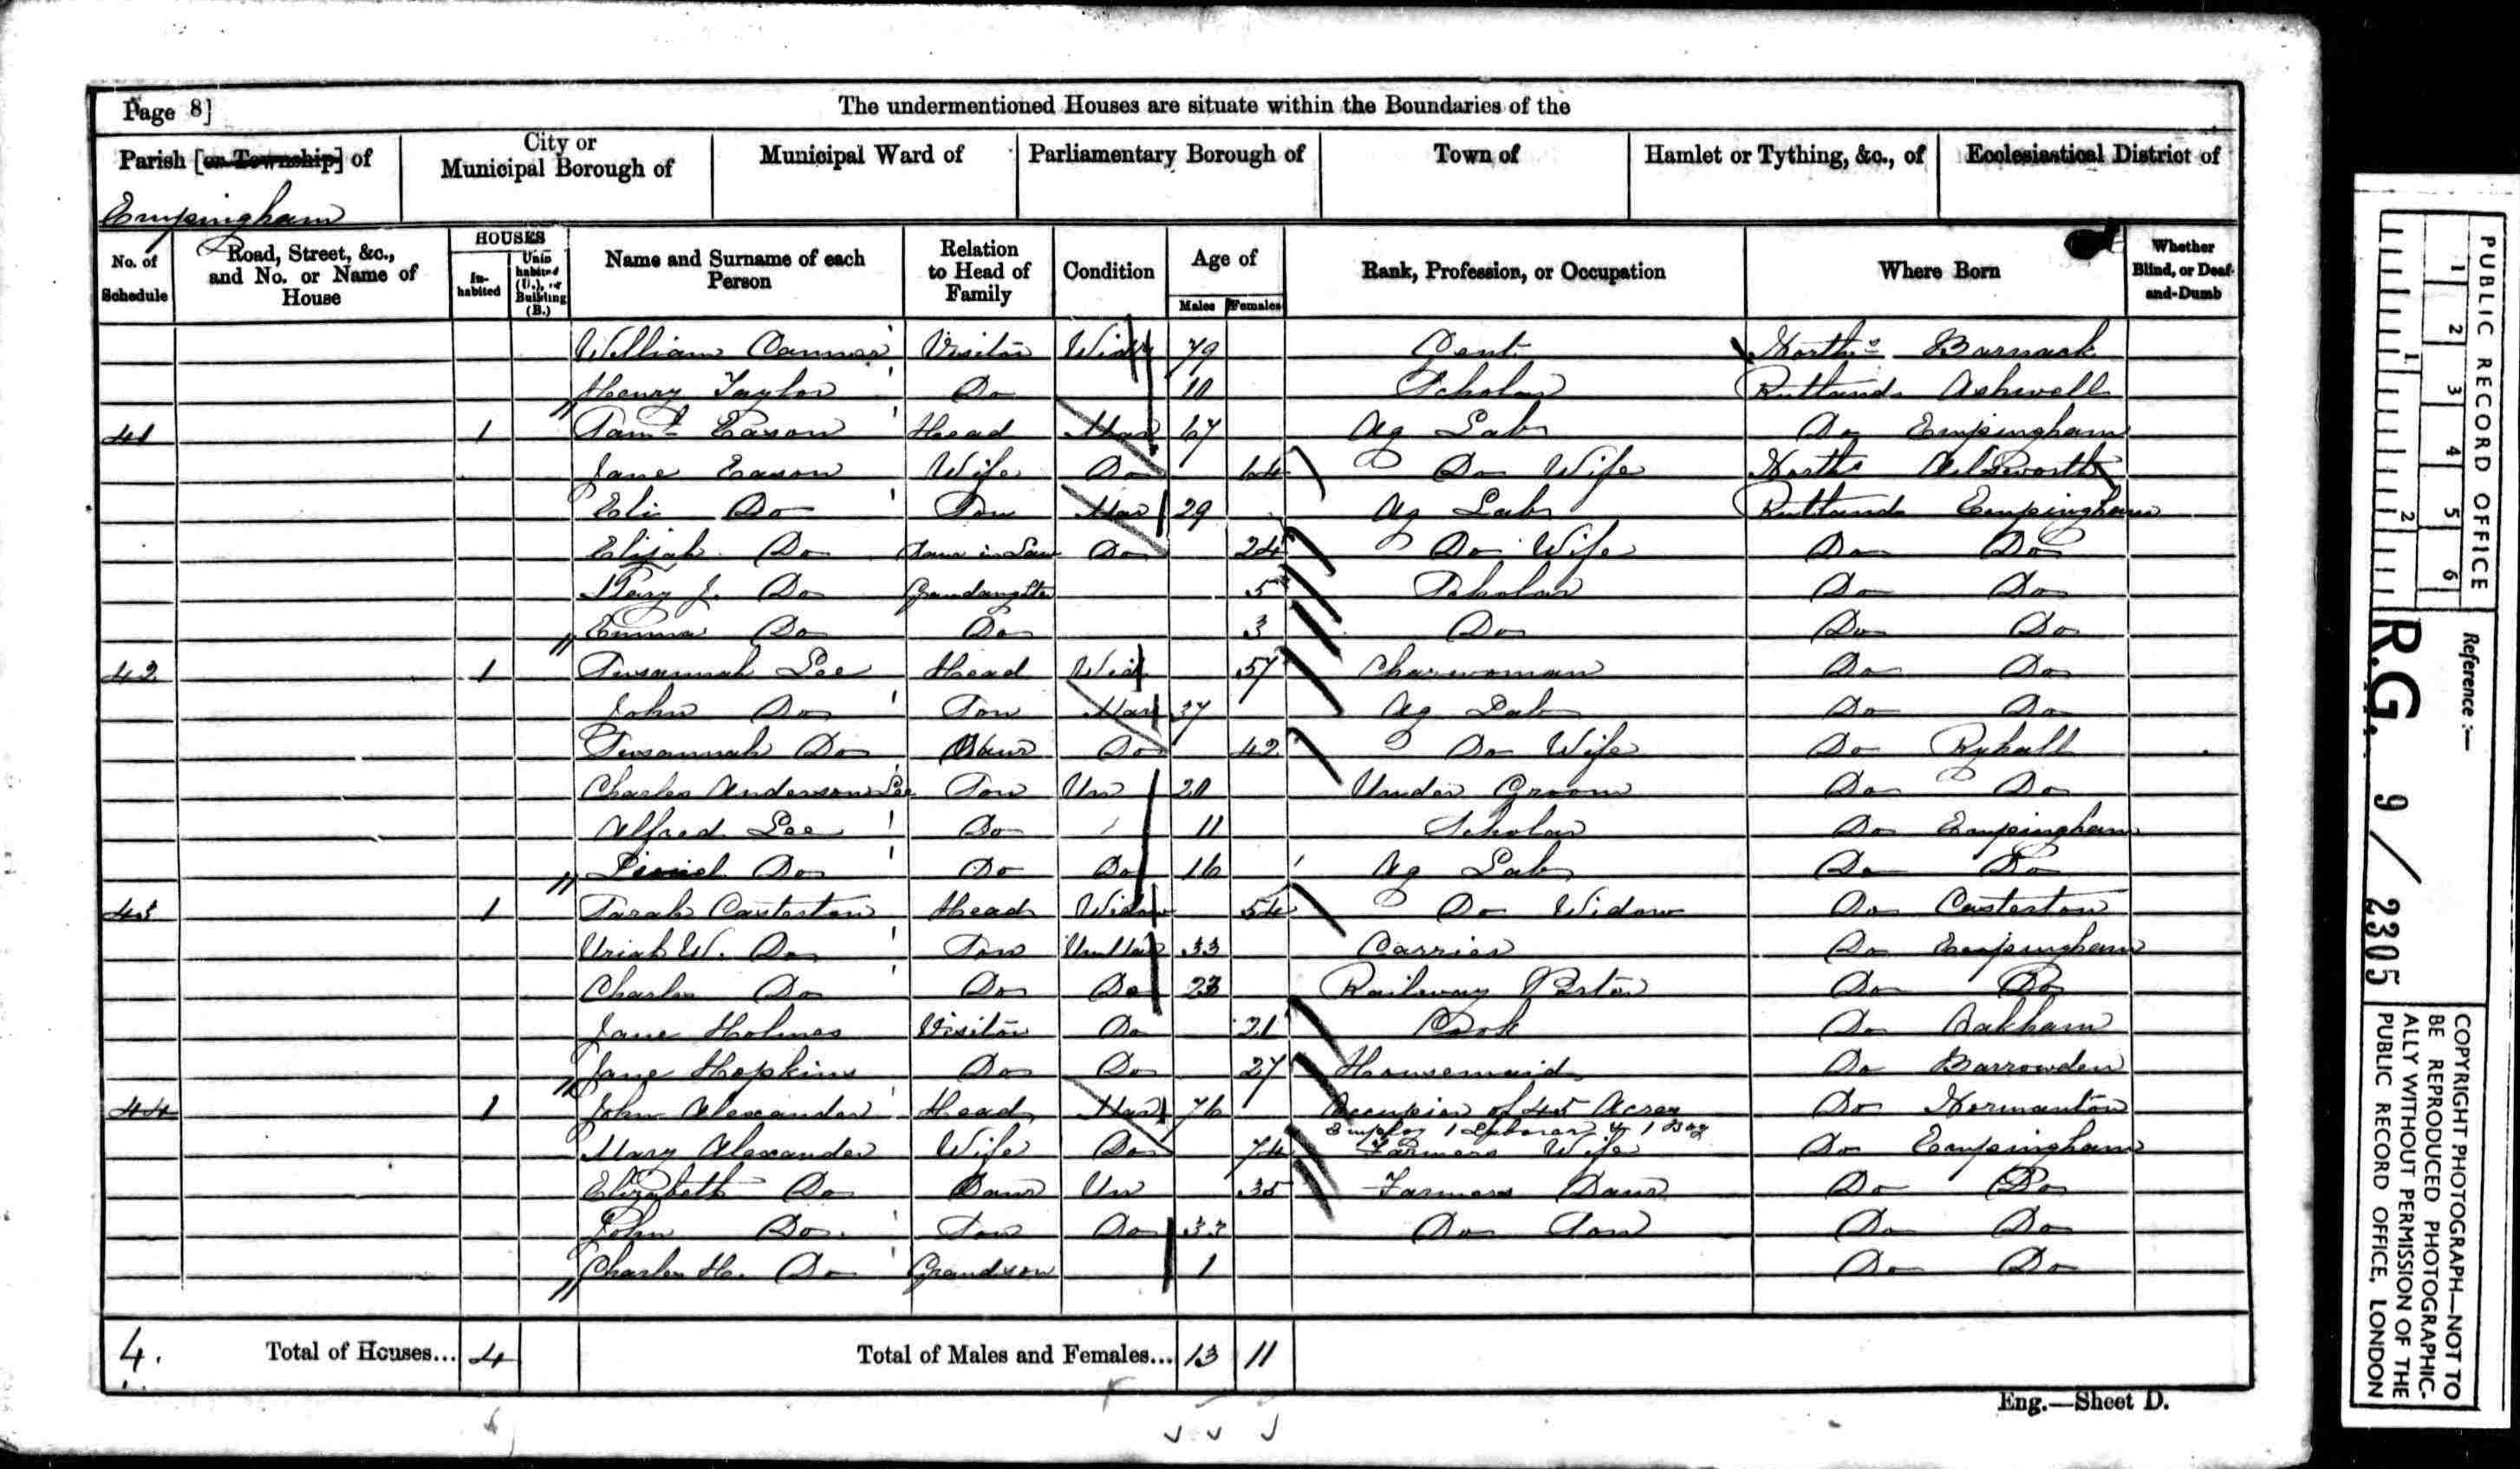 Page 8]
The undermentioned Houses are situate within the Boundaries of the
Parish [or Township] of Empingham
City or Municipal Borough of
Municipal Ward of
Parliamentary Borough of
Town of
Hamlet or Tything, &c., of
Ecclesiastical District of
No. of Schedule
Road, Street, &c., and No. or Name of House
HOUSES
In-habited
Unin habited (U.), or Building (B.)
Name and Surname of each Person
Relation to Head of Family
Condition
Age of
Males Females
Rank, Profession, or Occupation
Where Born
Whether Blind, or Deaf-and-Dumb
William Visitor Widr 79 Gent North Barnack
Henry Taylor Do 10 Scholar Rutland Ashwell
41 1 Saml Eason Head Mar 67 Ag Lab Do Empingham
Jane Eason Wife Do 64 Do Wife North Ailsworth
Eli Do Son Mar 29 Ag Lab Rutland Empingham
Elijah Do Daur in Law Do 24 Do Wife Do Do
Mary J. Do Grandaughter 5 Scholar Do Do
Emma Do Do 3 Do Do Do
42 1 Susannah Lee Head Wid 57 Charwoman Do Do
John Do Son Mar 37 Ag Lab Do Do
Susannah Do Daur Do 42 Do Wife Do Ryhall
Charles Anderson Lee Son Un 20 Under Groom Do Do
Alfred Lee Do 11 Scholar Do Empingham
Do Do Do 16 Ag Lab Do Do
43 1 Sarah Casterton Head Widow 54 Do Widow Do Casterton
Uriah W. Do Son UnMar 33 Carrier Do Empingham
Charles Do Do Do 23 Railway Porter Do Do
Jane Holmes Visitor Do 21 Cook Do Oakham
Jane Hopkins Do Do 27 Housemaid Do Barrowden
44 1 John Alexander Head Mar 76 Occupier of 45 Acres Do Normanton
Employ 1 Laborer & 1 Boy
Mary Alexander Wife Do 74 Farmers Wife Do Empingham
Elizabeth Do Daur Un 35 Farmers Daur Do Do
John Do. Son Do 33 Do Son Do Do
Charles H. Do Grandson 1 Do Do
4. Total of Houses... 4 Total of Males and Females... 13 11
Eng.—Sheet D.
PUBLIC RECORD OFFICE
1 2 3 4 5 6
1 2
Reference:—
R.G. 9/2305
COPYRIGHT PHOTOGRAPH—NOT TO
BE REPRODUCED PHOTOGRAPHIC-
ALLY WITHOUT PERMISSION OF THE
PUBLIC RECORD OFFICE, LONDON